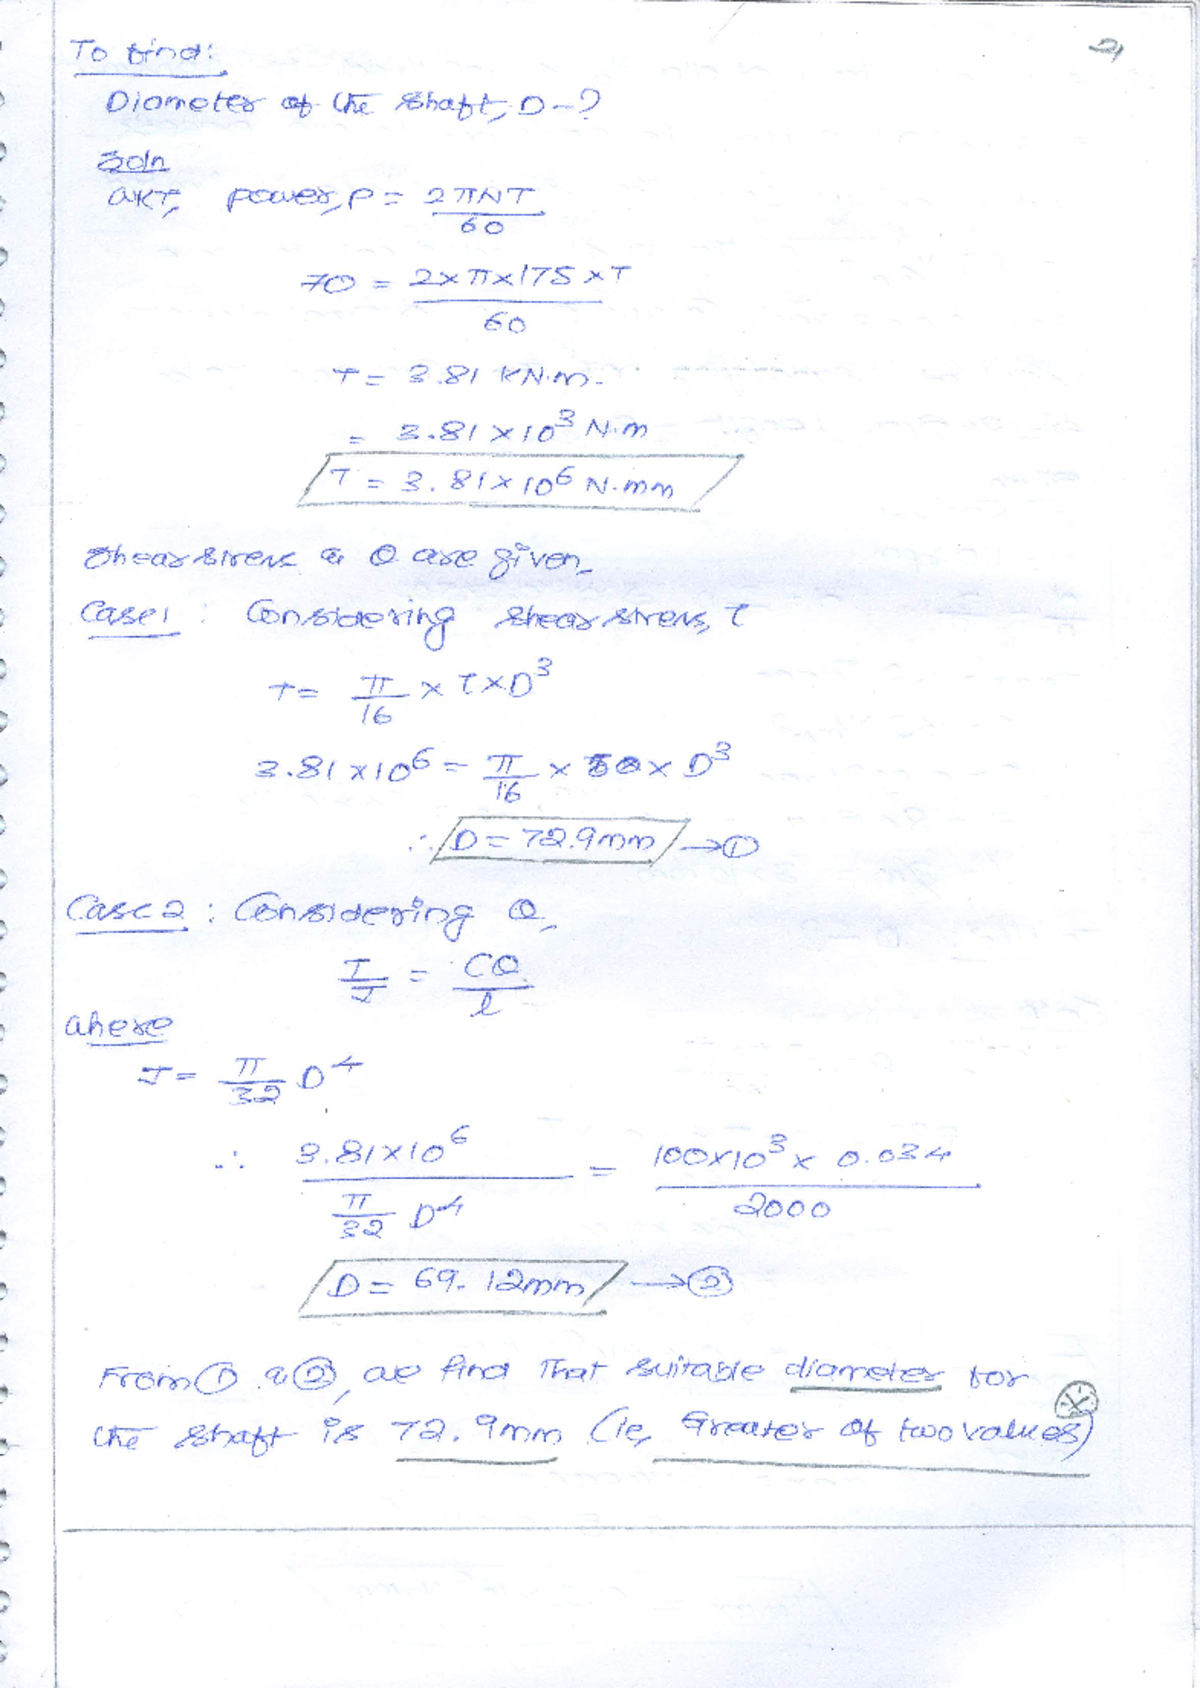 To find:
Diameter of the shaft, D - ?
Soln
WKT, power, P = 2πNT / 60
70 = 2×π×175×T / 60
T = 3.81 KN.m.
= 3.81 × 10³ N.m
T = 3.81 × 10⁶ N.mm
Shear stress & θ are given,
Case 1 : Considering shear stress, τ
T = π/16 × τ × D³
3.81 × 10⁶ = π/16 × 50 × D³
∴ D = 72.9mm → ①
Case 2 : Considering θ,
T/J = Cθ/l
where
J = π/32 D⁴
∴ 3.81×10⁶ / (π/32 D⁴) = 100×10³ × 0.034 / 2000
D = 69.12mm → ②
From ① & ②, we find That suitable diameter for
the shaft is 72.9mm (ie, Greater of two values)